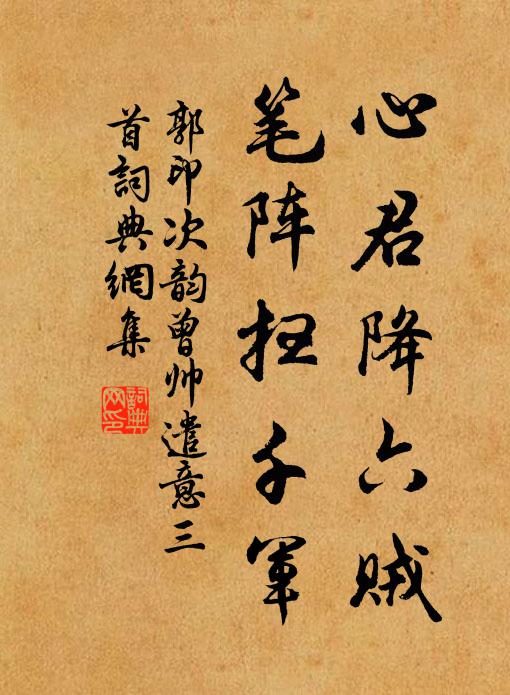 心君降六贼
笔阵扫千军
郭印次韵曾帅遣意三
首词典網集
詞典
网印